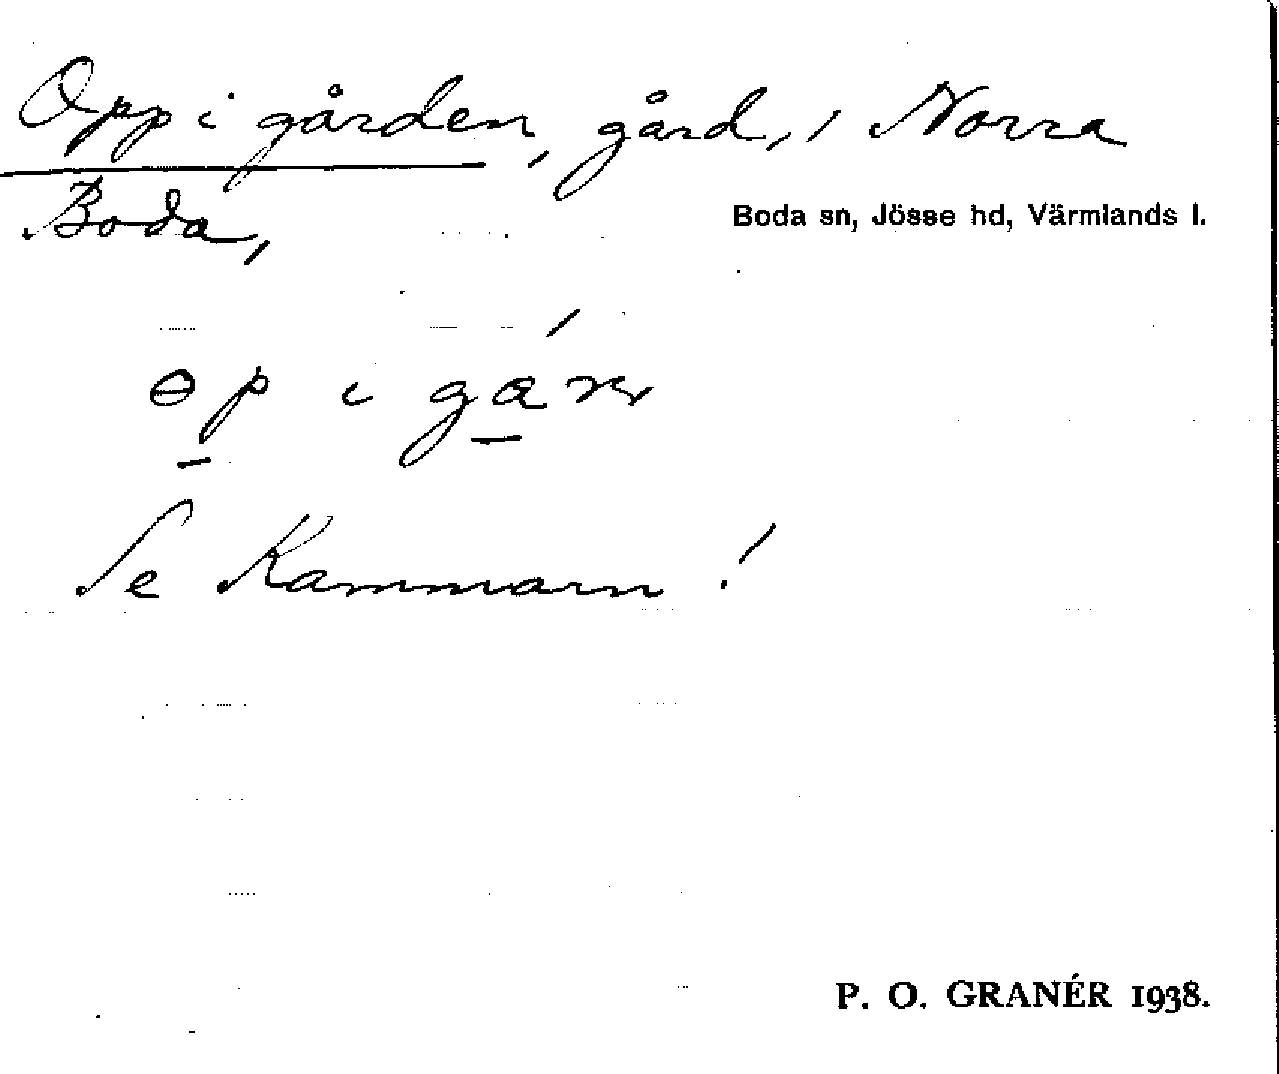 Opp i gården, gård, i Norra
Boda,
Boda sn, Jösse hd, Värmlands l.
ɵp i gárn
Se Kammarn!
P. O. GRANÉR 1938.